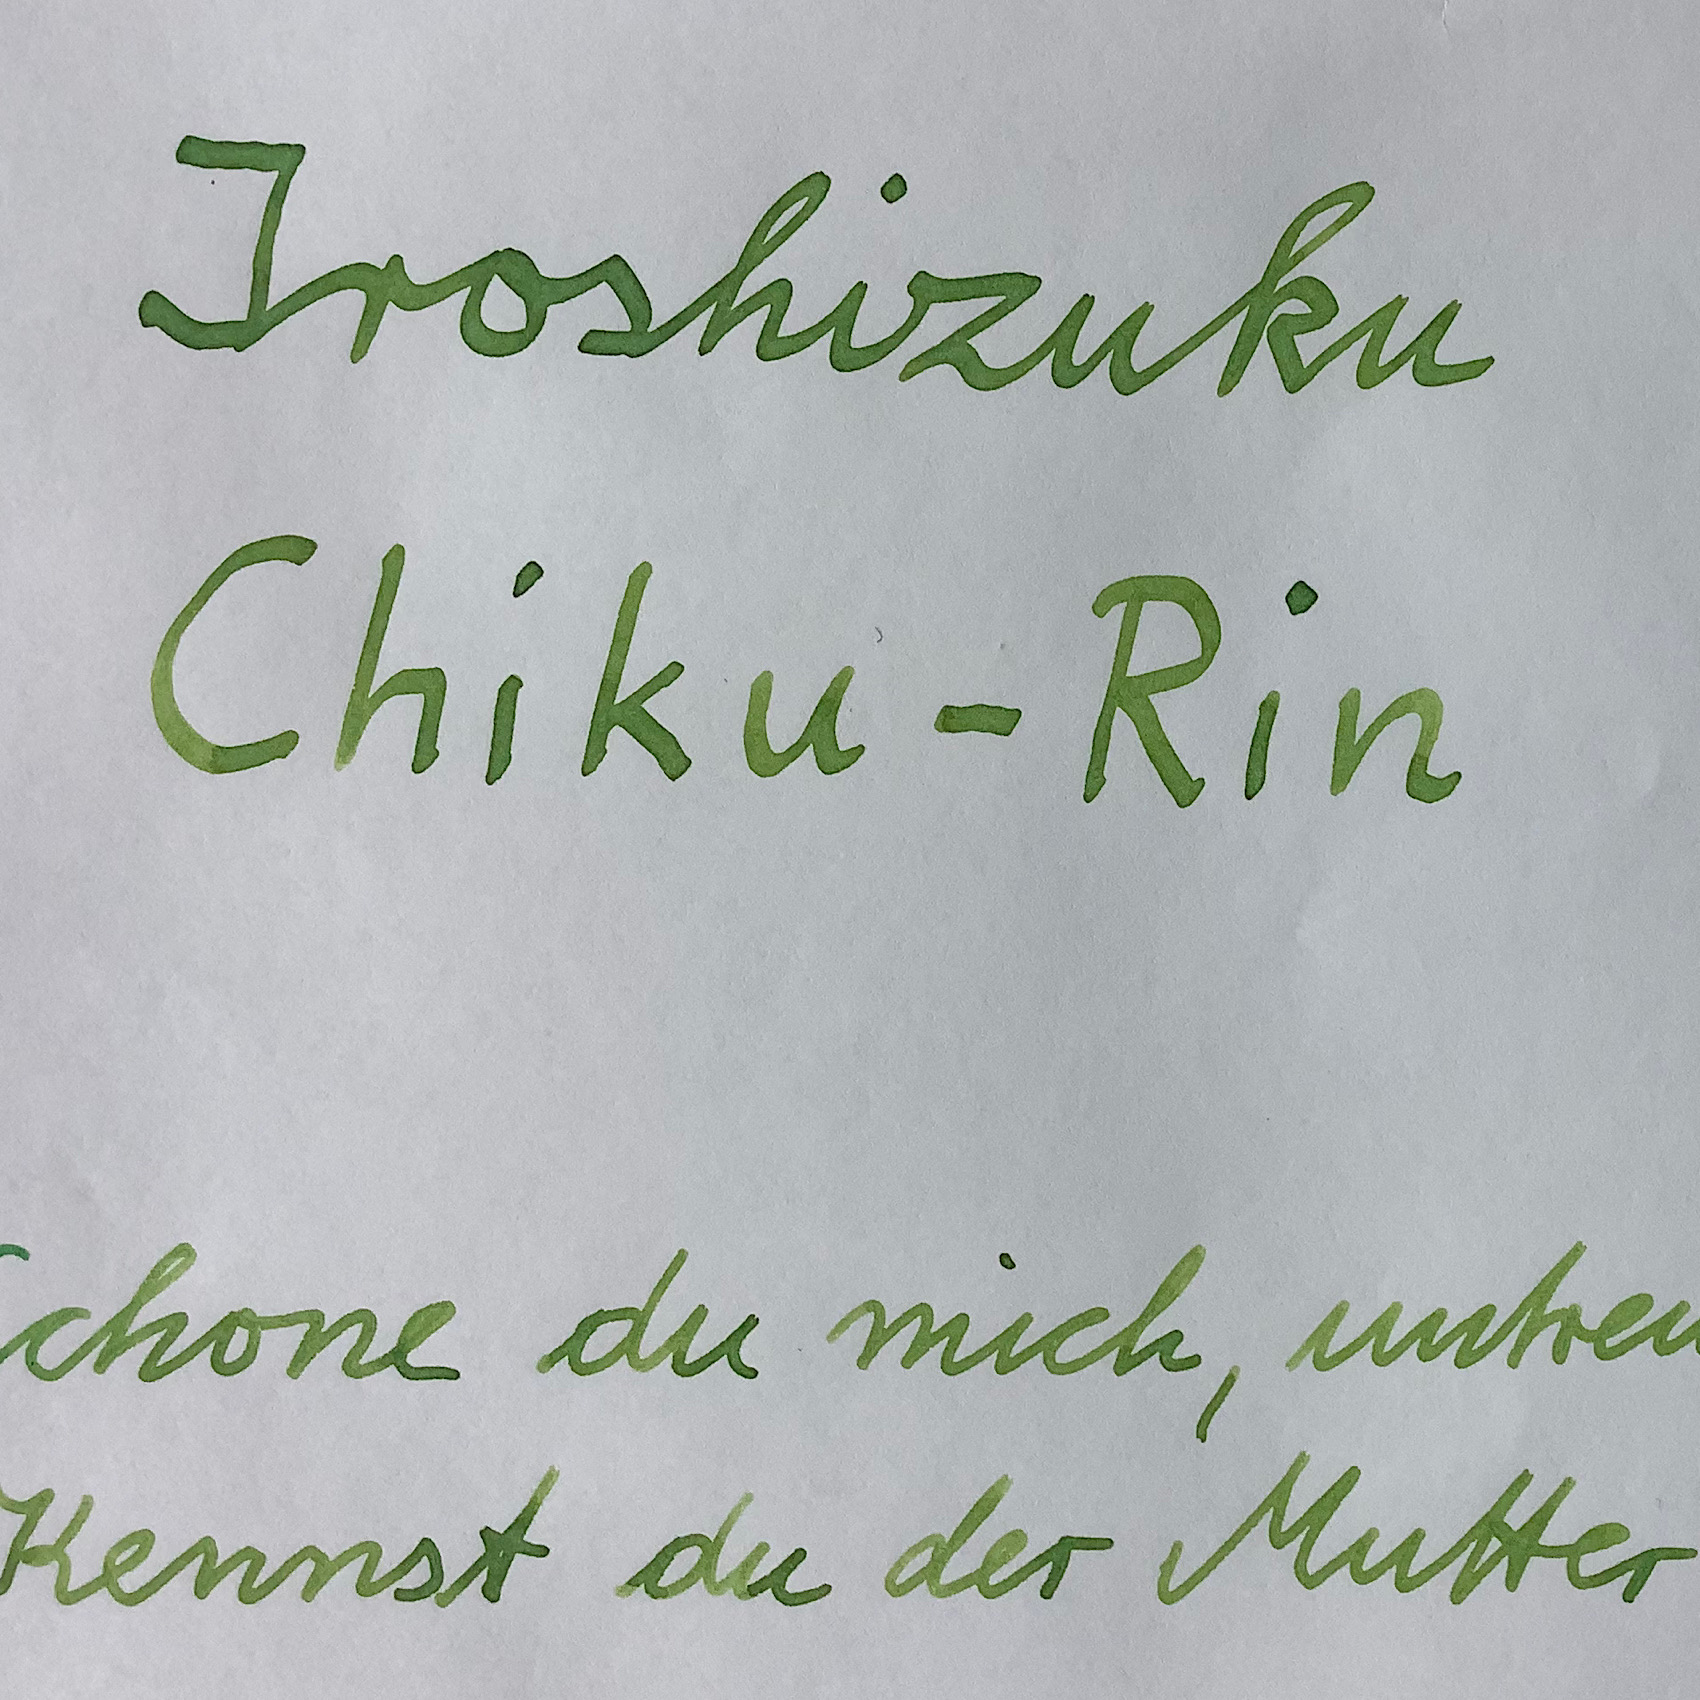 Iroshizuku
Chiku-Rin
Schone du mich, untreu
Kennst du der Mutter